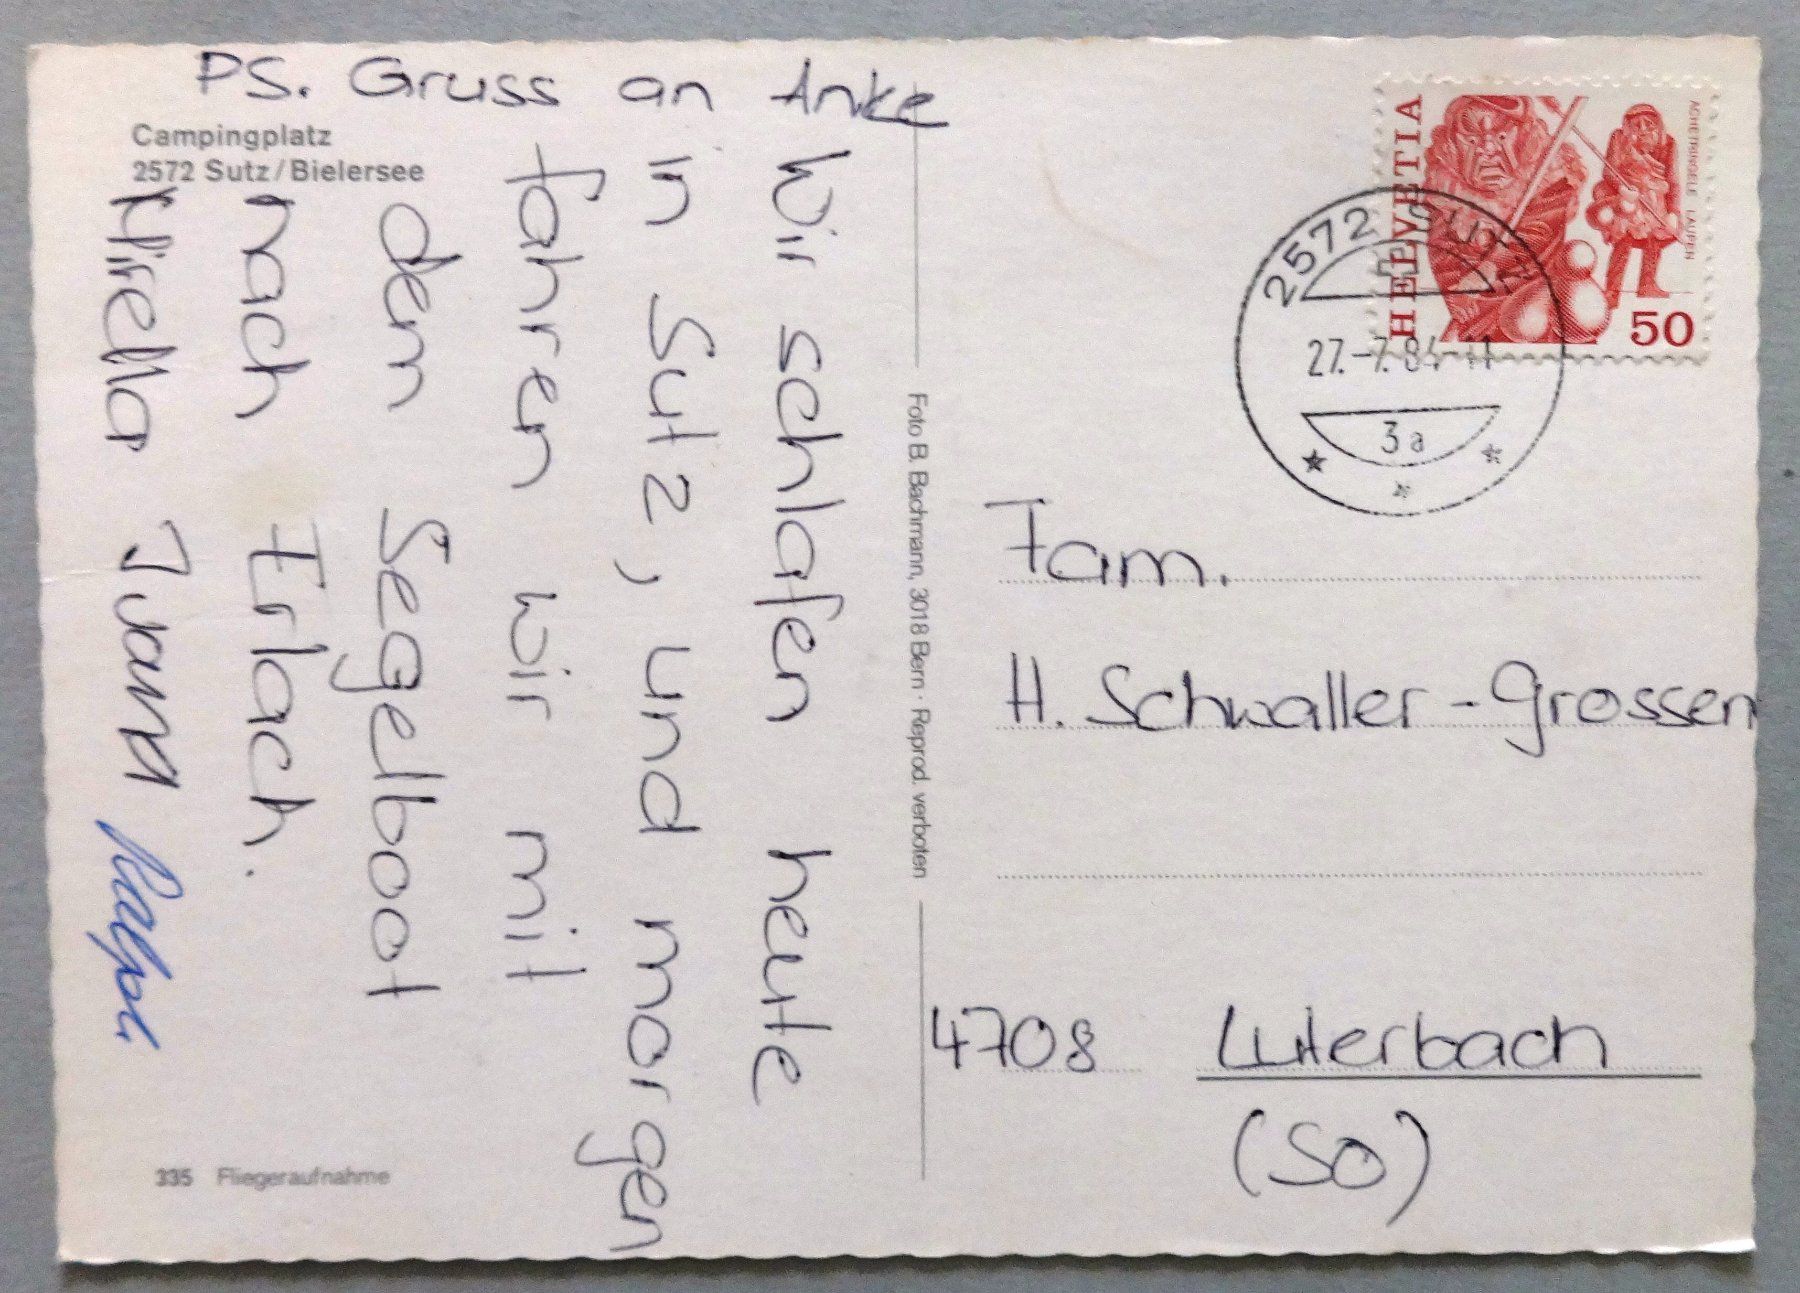 PS. Gruss an Anke
Campingplatz
2572 Sutz/Bielersee
Wir schlafen heute
in Sutz, und morgen
fahren wir mit
dem Segelboot
nach Erlach.
Mirella Ivana
335 Fliegeraufnahme
Foto B. Bachmann, 3018 Bern · Reprod. verboten
HELVETIA
ACHETRINGELE LAUPEN
50
2572 SUTZ
27.-7.84-11
3a
Fam.
H. Schwaller-Grossen
4708 Luterbach
(SO)